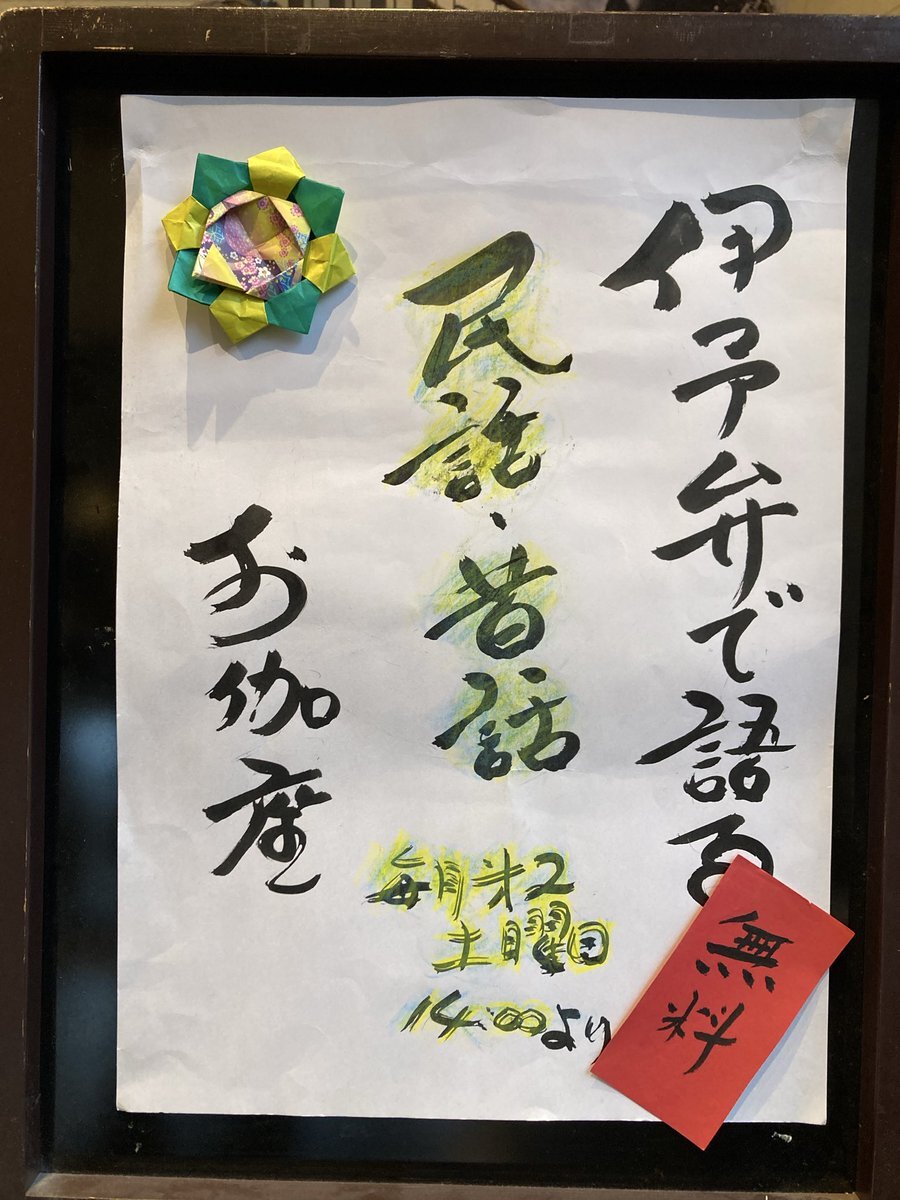 伊予弁で語る
民話・昔話
お伽座
毎月第2
土曜日
14:00より
無料